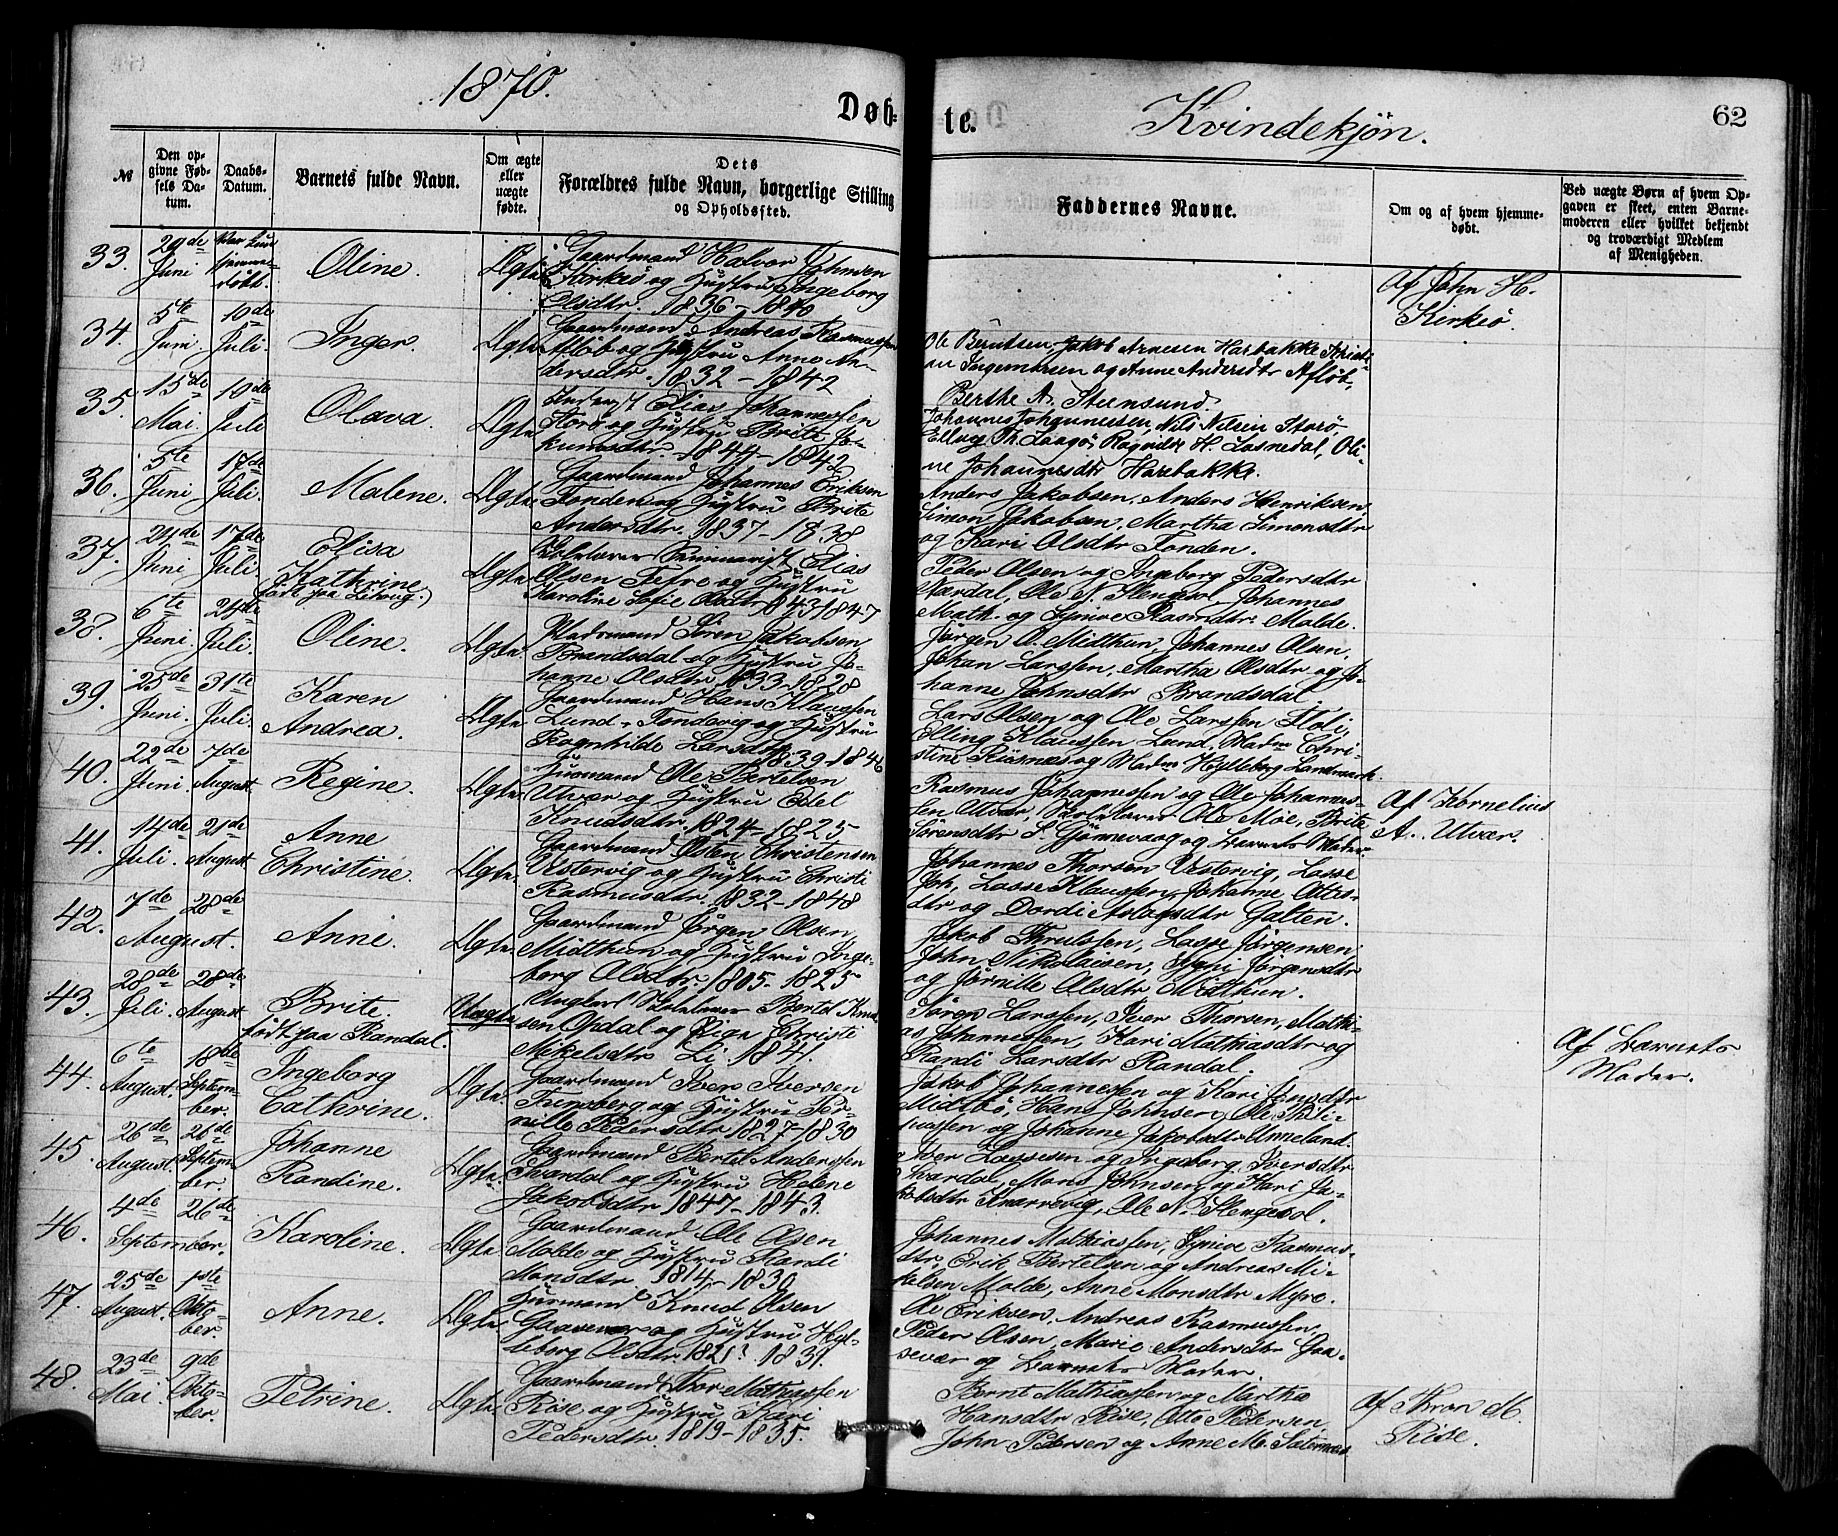 1870.
Døb-
te.
Kvindekjøn.
62
№
Den op-
givne Føb-
sels Da-
tum.
Daabs-
Datum.
Barnets fulde Navn.
Om ægte
eller
uægte
fødte.
Dets
Forældres fulde Navn, borgerlige Stilling
og Opholdssted.
Faddernes Navne.
Om og af hvem hjemme-
døbt.
Ved uægte Børn af hvem Op-
gaven er skeet, enten Barne-
moderen eller hvilket bekjendt
og troværdigt Medlem
af Menigheden.
33.
29de
Juni
Var kun
hjemme-
døbt.
Oline.
Ægte
Gaardmand Halvor Johnsen
Kirkeø og Hustru Ingeborg
Olsdtr. 1836-1840
Af John H.
Kirkeø.
34.
5te
Juni
10de
Juli.
Inger.
Ægte
Gaardmand Andreas Rasmussen
Afløb og Hustru Anne An-
dersdtr. 1832-1842
Ole Berntsen, Jakob Arnesen Harbakke, Kristi-
an Ingemarsen og Anne Andersdtr Afløb,
Berthe A. Steensund.
35.
15de
Mai.
10de
Juli
Olava.
Ægte
Elias Johannessen
Storø og Hustru Brite Jo-
kumsdtr. 1844-1842
Johannes Johannessen, Nils Nilsen Storø
Ellug Th. Laagø, Ragnilde H. Losnedal, Oli-
ne Johannesdtr Harbakke.
36.
5te
Juni
17de
Juli.
Malene.
Ægte
Gaardmand Johannes Eriksen
Tonden og Hustru Brite
Andersdtr. 1837-1838
Anders Jakobsen, Anders Henriksen
Simon Jakobsen, Martha Simonsdtr
og Kari Olsdtr Tonden.
37.
24de
Juni
17de
Juli
Elisa
Kathrine
Ægte
Skolelærer Seminarist Elias
Olsen Tefre og Hustru
Karoline Sofie Olsdtr 1843-1847
Peder Olsen og Ingeborg Pedersdtr
Nærdal, Ole N. Stengesol, Johannes
Math. og Synive Rasmdtr. Molde.
38.
6te
Juni
24de
Juli.
Oline.
Ægte
Pladsmand Søren Jakobsen
Brandsdal og Hustru Jo-
hanne Olsdtr 1833-1828
Jørgen O. Midthun, Johannes Olsen,
Johan Larssen, Martha Olsdtr og Jo-
hanne Johnsdtr Brandsdal
39.
25de
Juni.
31te
Juli.
Karen
Andrea.
Ægte
Gaardmand Hans Klaussen
Lund-Tondevig og Hustru
Rognhilde Larsdtr 1839-1846
Lars Olsen og Ole Larssen Floli,
Elling Klaussen Lund, Madm Chri-
stine Risnæs og Madm Hylleborg Landmark.
40.
22de
Juni
7de
August.
Regine.
Ægte
Husmand Ole Bertelsen
Utvær og Hustru Edel
Knudsdtr. 1824-1825
Rasmus Johannessen og Ole Johannes-
sen Utvær, Skolelærer Ole Moe, Brite
Sørensdtr S. Gjønnevaag og Barnets Moder.
Af Kornelius
A. Utvær.
41.
14de
Juli.
21de
August
Anne
Christine.
Ægte.
Gaardmand Østen Christensen
Vestervig og Hustru Christi
Rasmusdtr. 1832-1848
Johannes Thorsen Vestervig, Lasse
Joh, Lasse Klaussen, Johanne Otters-
dtr og Dordi Aslagsdtr Galten.
42.
7de
August.
28de
Anni.
Ægte.
Gaardmand Jørgen Olsen
Midthun og Hustru Inge-
borg Olsdtr. 1805-1825
Jakob Thrulssen, Lasse Jørgensen
John Nikolaisen, Anni Jørgensdtr
og Jørnille Olsdtr Midthun.
43.
28de
Juli.
28de
August
Brite.
født paa Randal.
Uægte
Ungkarl Skolelærer Bertel Knud-
sen Opdal og Pige Christi
Mikelsdtr Li 1841.
Jørgs Larssen, Iver Thorsen, Mathi-
as Johannessen, Kari Mathiasdtr og
Randi Larsdtr Randal.
Af Barnets
Moder.
44.
6te
August.
18de
Septem-
ber.
Ingeborg
Cathrine.
Ægte.
Gaardmand Iver Iversen
Tunsberg og Hustru Per-
nille Pedersdtr. 1827-1830
Jakob Johannessen og Kari Jensdtr
Midtbø, Hans Johnsen, Ole Thi-
assen og Johanne Jakobsdtr Unneland.
45.
26de
August.
26de
Septem-
ber.
Johanne
Randine.
Ægte.
Gaardmand Bertel Anderssen
Svardal og Hustru Helene
Jakobsdtr 1847-1843.
Iver Lassesen og Ingeborg Iversdtr
Svardal, Mons Johnsen og Kari Ja-
kobsdtr Knarrevig, Ole N. Stengesol.
46.
4de
September.
26de
Karoline.
Ægte
Gaardmand Ole Olsen
Molde og Hustru Randi
Monsdtr. 1814-1830
Johannes Mathiassen, Synive Rasmus-
dtr, Erik Bertelsen og Andreas Mi-
kelsen Molde, Anne Monsdtr Myre.
47.
25de
August.
1ste
Okto-
ber.
Anne.
Ægte
Husmand Knud Olsen
Gaasevær og Hustru Hyl-
leborg Olsdtr. 1821? 1831.
Ole Eriksen, Andreas Rasmussen,
Peder Olsen, Marie Andersdtr Gaa-
sevær og Barnets Moder.
48.
23de
Mai.
9de
Okto-
ber.
Petrine.
Ægte.
Gaardmand Thor Mathiassen
Rise og Hustru Kari
Pedersdtr. 1819-1835.
Bernt Mathiassen og Martha
Hansdtr Rise, Otto Pedersen
John Pedersen og Anne M. Sæternæs
Af Thron M.
Rise.